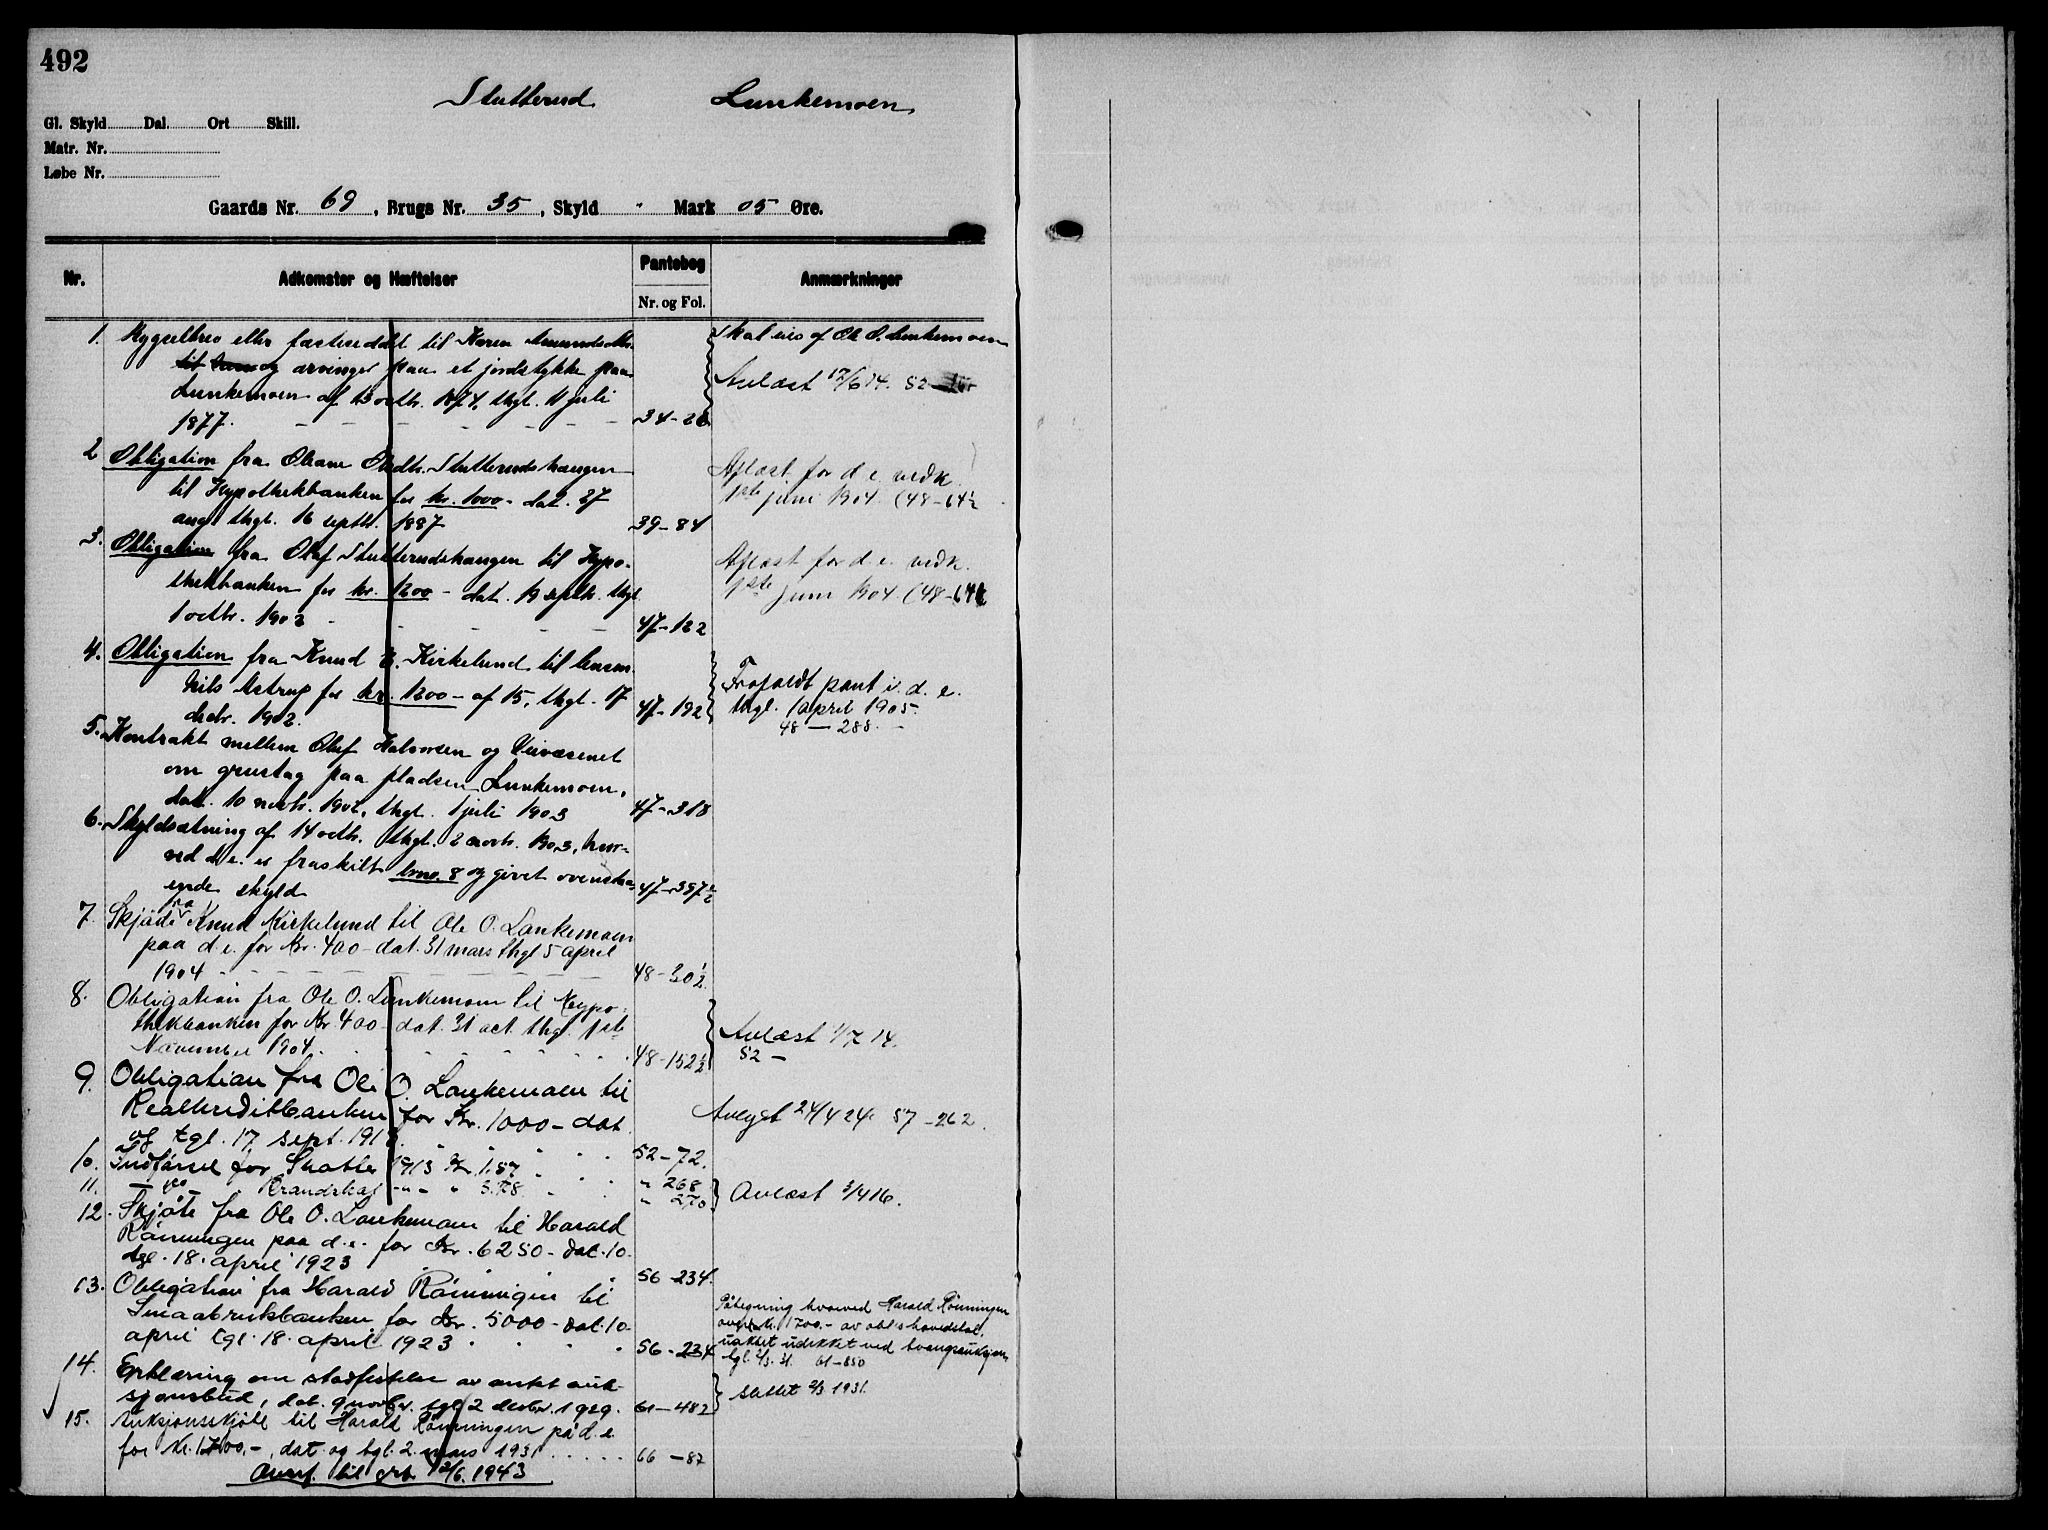 492
Stutterud Lunkemoen
Gl. Skyld Dal. Ort Skill.
Matr. Nr.
Løbe Nr.
Gaards Nr. 69, Brugs Nr. 35, Skyld " Mark 05 Øre.
Nr. Adkomster og Hæftelser Pantebog Nr. og Fol. Anmærkninger
1. Bygselbrev eller fæsteseddel til Karen Amundsdtr.
og arvinger paa et jordstykke paa
Lunkemoen af 13 octbr. 1874, thgl. 11 juli
1877. 34-26
Skal eies af Ole O. Lunkemoen
Avlæst 17/6 14. 52
2 Obligation fra Oleane Olsdtr. Stutterudshaugen
til Hypothekbanken for kr. 1000 - dat. 27
aug. thgl. 16 septbr. 1887 39-84
Aflæst for d. e. vedk.
1ste juni 1904 (48-64½
3. Obligation fra Olaf Stutterudshaugen til Hypo-
thekbanken for kr. 1200 - dat. 19 septbr. thgl.
1 octbr. 1902 47-122
Aflæst for d. e. vedk.
1ste juni 1904 (48-64½
4. Obligation fra Knud E. Kirkelund til lensm.
Nils Astrup for kr. 1200 - af 15, thgl. 17
decbr. 1902. 47-192
Frafaldt pant i d. e.
thgl. 1 april 1905.
48 - 288.
5. Kontrakt mellem Oluf Halvorsen og Veivæsenet
om grustag paa pladsen Lunkemoen,
dat. 10 novbr. 1902, thgl. 1 juli 1903 47-318
6. Skyldsætning af 14 octbr. thgl. 2 novbr. 1903, hvor-
ved d. e. er fraskilt brno. 8 og givet ovenstaa-
ende skyld 47-397½
7. Skjøde fra Knud Kirkelund til Ole O. Lunkemoen
paa d. e. for Kr. 400 - dat. 31 mars thgl 5 april
1904 48-30½
8. Obligation fra Ole O. Lunkemoen til Hypo-
thekbanken for Kr 400 - dat. 31 oct. thgl. 1ste
November 1904. 48-152½
Avlæst 1/7 14.
52 -
9. Obligation fra Ole O. Lunkemoen til
Realkreditbanken for Kr. 1000 - dat
og tgl. 17 sept. 1913. 52-72.
Avlyst 24/4 24. 57-262.
10. Indførsel for Skatter 1913 Kr. 1.87 " 268
11. - " - Brandskat - " - " 3.78 " 270
Avlæst 3/4 16.
12. Skjøte fra Ole O. Lunkemoen til Harald
Rønningen paa d. e. for Kr. 6250 - dat. 10
tgl. 18. april 1923 56-234.
13. Obligation fra Harald Rønningen til
Smaabrukbanken for Kr. 5000 - dat. 10
april tgl. 18. april 1923 56-234
Påtegning hvorved Harald Rønningen
overt. kr. 1700.- av obl.s hovedstol,
uaktet udekket ved tvangsauksjon,
tgl. 2/3. 31. 61-850
14. Erklæring om stadfestelse av antet auk-
sjonsbud, dat. 9 novbr. tgl. 2 desbr. 1929. 61-482
slettet 2/3 1931.
15. Auksjonsskjøte til Harald Rønningen på d. e.
for kr. 1700,-, dat. og tgl. 2. mars 1931 66-87
Overf. til grb. 12/6. 1943